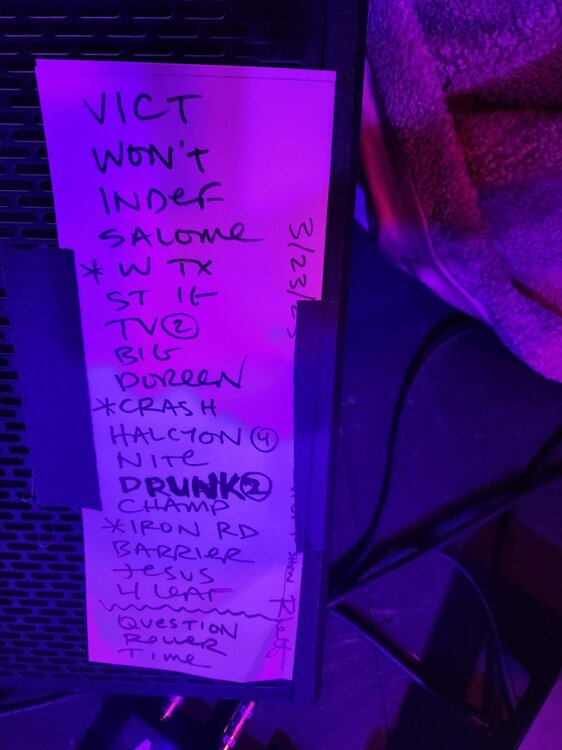 VICT
WON'T
INDEF
SALOME
* W TX
ST IG
TV ②
BIG
DOREEN
* CRASH
HALCYON ④
NITE
DRUNK ②
CHAMP
* IRON RD
BARRIER
JESUS
4 LEAF
QUESTION
ROLLER
TIME
3/23/23
Rhett